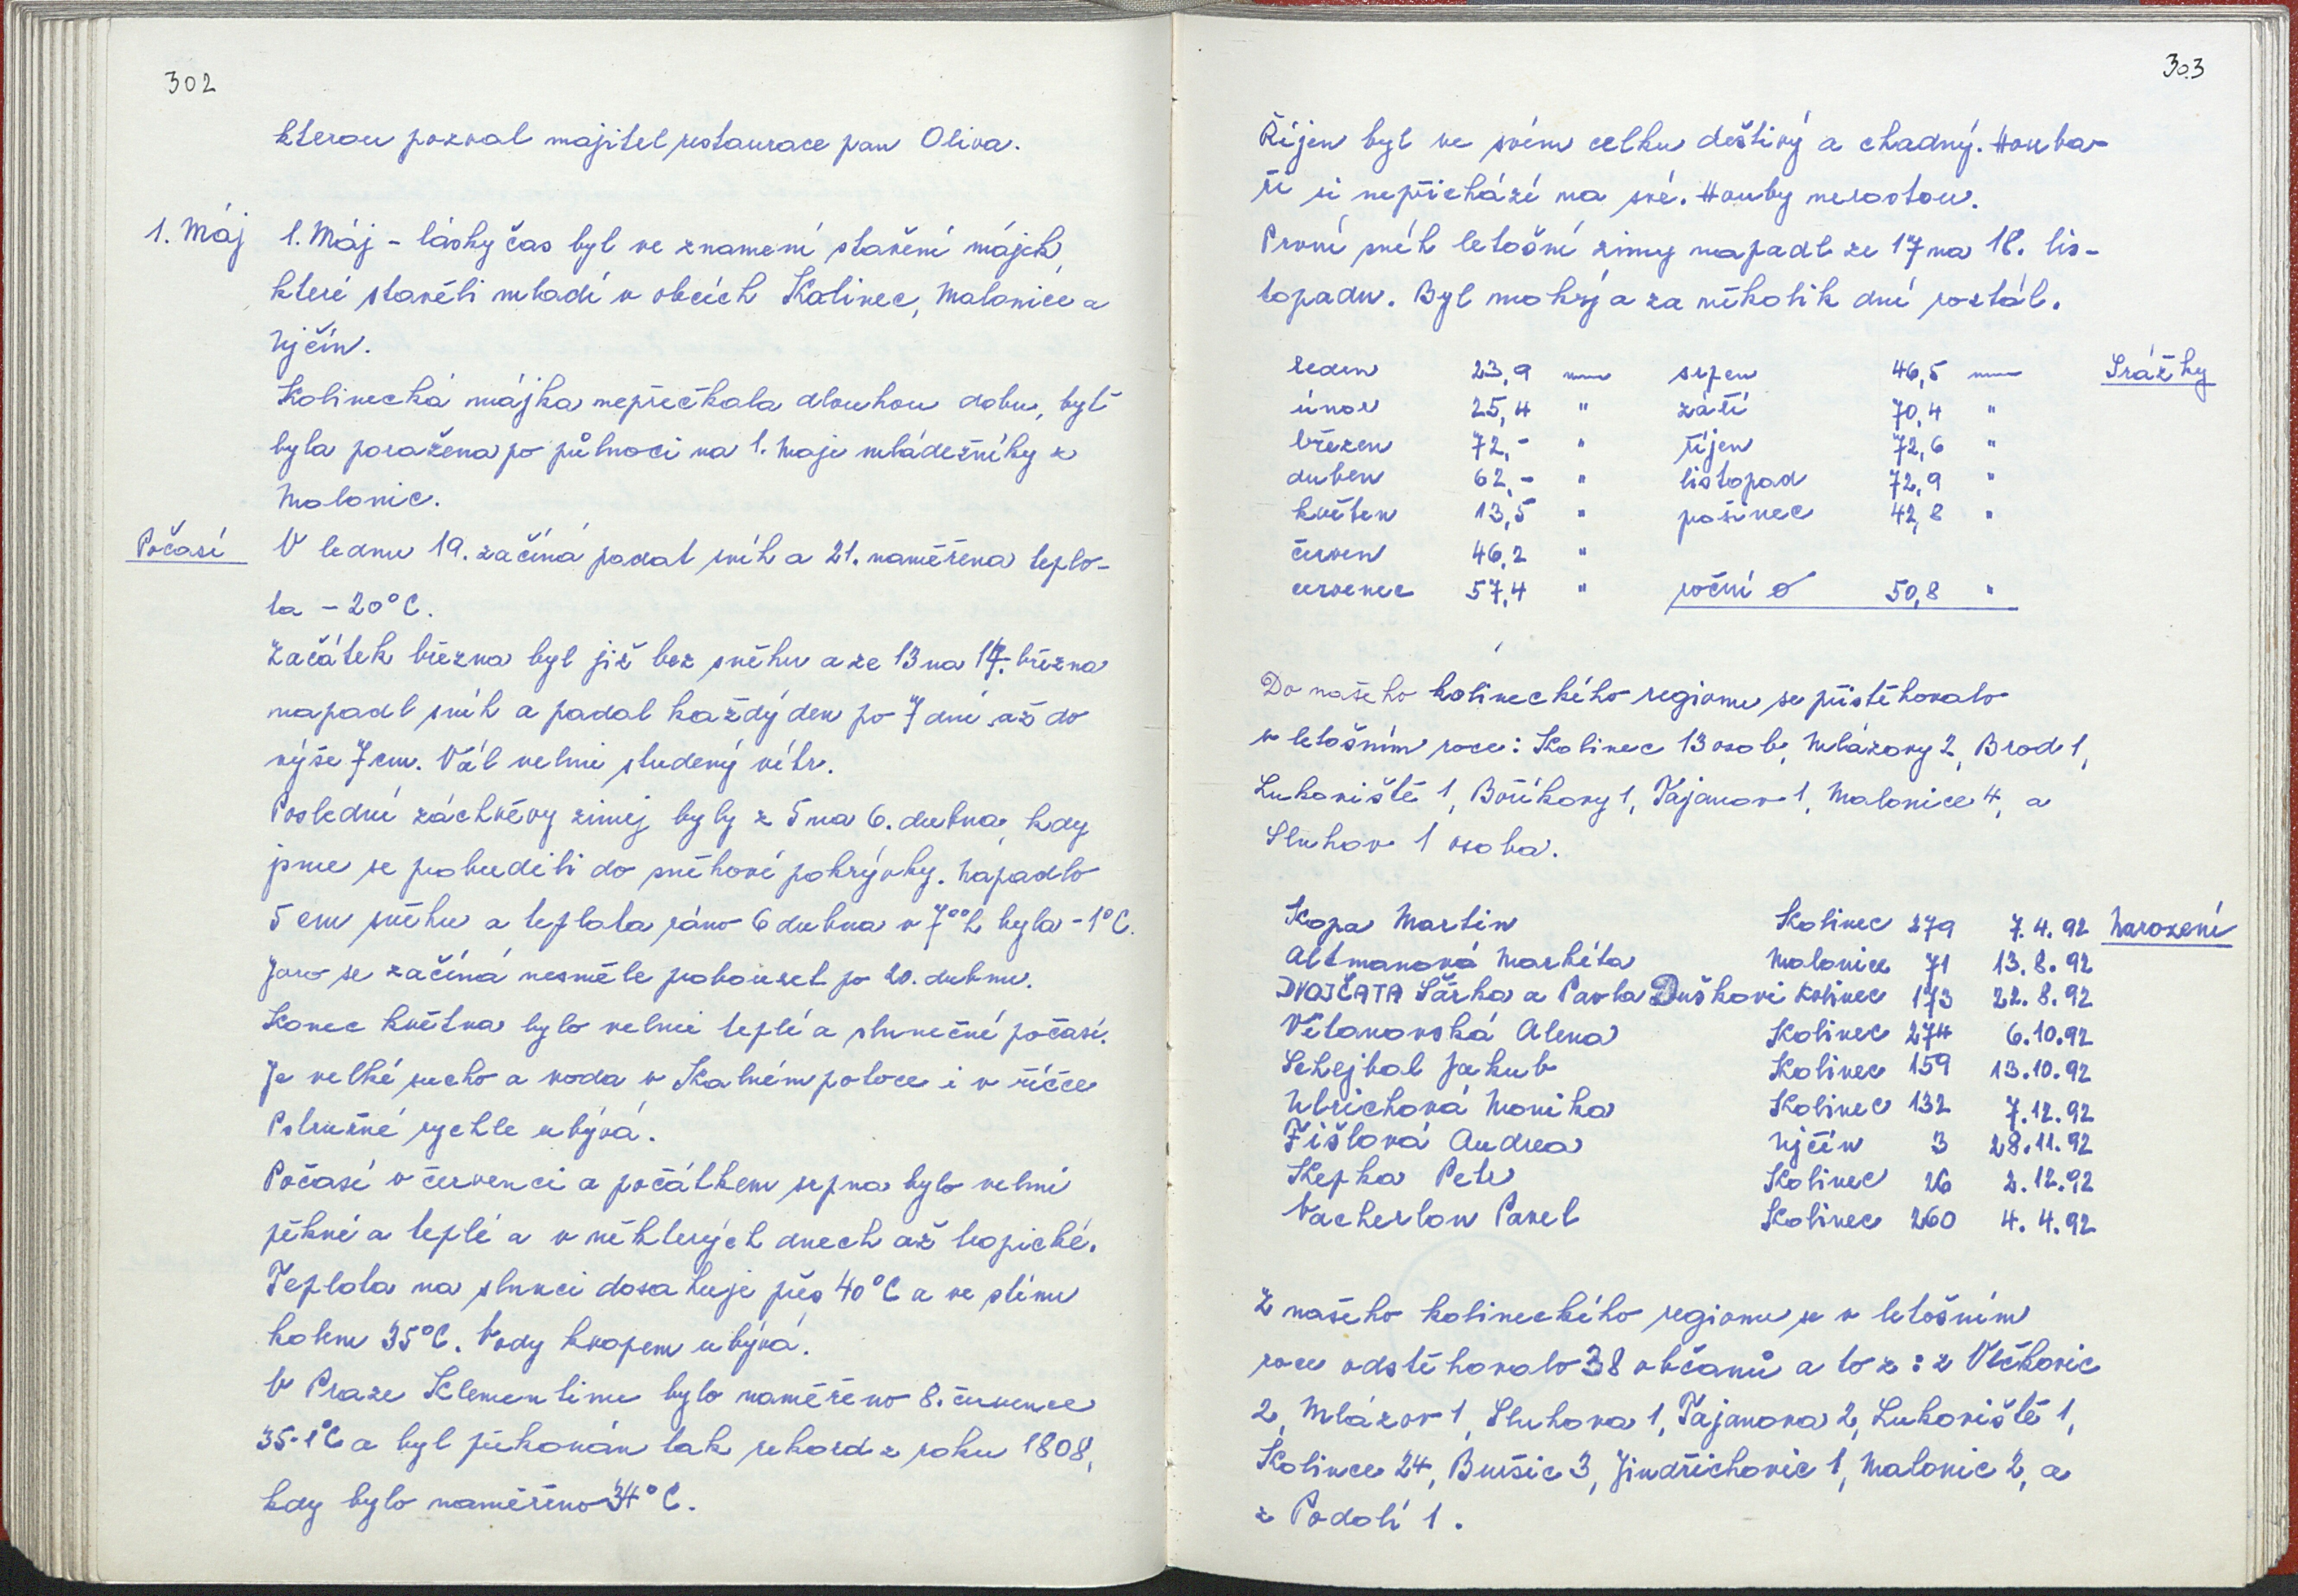 302
kterou pozval majitel restaurace pan Oliva.
1. Máj
1. Máj - lásky čas byl ve znamení stavění májek,
které stavěli mladí v obcích Kolinec, Malonice a
Ujčín.
Kolinecká májka nepřečkala dlouhou dobu, byť
byla poražena po půlnoci na 1. Máje mládežníky z
Malonic.
Počasí
V lednu 19. začíná padat sníh a 21. naměřena teplo-
ta - 20°C.
Začátek března byl již bez sněhu a ze 13 na 14. března
napadl sníh a padal každý den po 7 dní až do
výše 7 cm. Vál velmi studený vítr.
Poslední záchvěvy zimy byly z 5 na 6. dubna, kdy
jsme se probudili do sněhové pokrývky. Napadlo
5 cm sněhu a teplota ráno 6 dubna v 7°°h byla - 1°C.
Jaro se začíná nesměle probouzet po 20. dubnu.
Konec května bylo velmi teplé a slunečné počasí.
Je velké sucho a voda v Kalném potoce i v říčce
Ostružné rychle ubývá.
Počasí v červenci a počátkem srpna bylo velmi
pěkné a teplé a v některých dnech až tropické.
Teplota na slunci dosahuje přes 40°C a ve stínu
kolem 35°C. Vody kvapem ubývá.
V Praze Klementinu bylo naměřeno 8. července
35.1°C a byl překonán tak rekord z roku 1808,
kdy bylo naměřeno 34°C.
303
Říjen byl ve svém celku deštivý a chladný. Houba-
ři si nepřichází na své. Houby nerostou.
První sníh letošní zimy napadl ze 17 na 18. lis-
topadu. Byl mokrý a za několik dní roztál.
Srážky
leden 23,9 mm srpen 46,5 mm
únor 25,4 " září 70,4 "
březen 72,- " říjen 72,6 "
duben 62,- " listopad 72,9 "
květen 13,5 " posinec 42,8 "
červen 46,2 "
červenec 57,4 " roční ø 50,8 "
Do našeho kolineckého regionu se přistěhovalo
v letošním roce: Kolinec 13 osob, Mlázovy 2, Brod 1,
Lukoviště 1, Boříkovy 1, Tajanov 1, Malonice 4, a
Sluhov 1 osoba.
Narození
Kopa Martin Kolinec 279 7.4.92
Altmanová Markéta Malonice 71 13.8.92
DVOJČATA Šárka a Pavla Duškovi Kolinec 173 22.8.92
Větanovská Alena Kolinec 274 6.10.92
Schejbal Jakub Kolinec 159 13.10.92
Ulrichová Monika Kolinec 132 7.12.92
Fišlová Andrea Ujčín 3 28.11.92
Kepka Petr Kolinec 26 2.12.92
Vacherlon Pavel Kolinec 260 4.4.92
Z našeho kolineckého regionu se v letošním
roce odstěhovalo 38 občanů a to z: z Vlčkovic
2, Mlázov 1, Sluhova 1, Tajanova 2, Lukoviště 1,
Kolince 24, Buršic 3, Jindřichovic 1, Malonic 2, a
z Podolí 1.